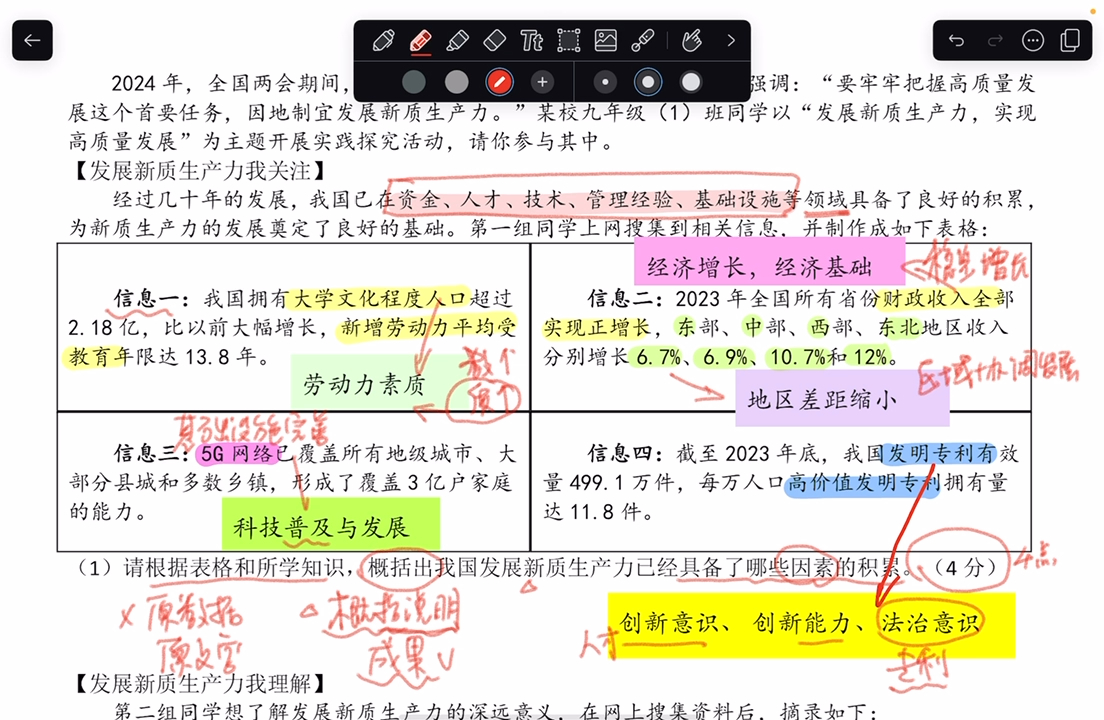 Tt
2024 年，全国两会期间，
强调：“要牢牢把握高质量发
展这个首要任务，因地制宜发展新质生产力。”某校九年级（1）班同学以“发展新质生产力，实现
高质量发展”为主题开展实践探究活动，请你参与其中。
【发展新质生产力我关注】
经过几十年的发展，我国已在资金、人才、技术、管理经验、基础设施等领域具备了良好的积累，
为新质生产力的发展奠定了良好的基础。第一组同学上网搜集到相关信息，并制作成如下表格：
信息一：我国拥有大学文化程度人口超过
2.18 亿，比以前大幅增长，新增劳动力平均受
教育年限达 13.8 年。
劳动力素质
经济增长，经济基础
稳定增长
信息二：2023 年全国所有省份财政收入全部
实现正增长，东部、中部、西部、东北地区收入
分别增长 6.7%、6.9%、10.7%和 12%。
地区差距缩小
区域协调发展
基础设施完善
信息三：5G 网络已覆盖所有地级城市、大
部分县城和多数乡镇，形成了覆盖 3 亿户家庭
的能力。
科技普及与发展
信息四：截至 2023 年底，我国发明专利有效
量 499.1 万件，每万人口高价值发明专利拥有量
达 11.8 件。
（1）请根据表格和所学知识，概括出我国发展新质生产力已经具备了哪些因素的积累。（4 分）
4点
原数据
原文字
概括说明
成果
人才
创新意识、创新能力、法治意识
专利
【发展新质生产力我理解】
第二组同学想了解发展新质生产力的深远意义，在网上搜集资料后，摘录如下：